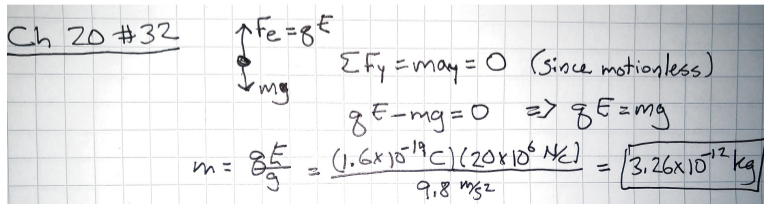 Ch 20 #32
Fe = qE
mg
ΣFy = may = 0 (since motionless)
qE - mg = 0 => qE = mg
m = qE/g = (1.6x10^-19 C)(20x10^6 N/C)/9.8 m/s2 = 3.26x10^-12 kg